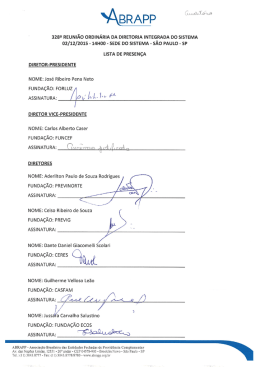 ABRAPP
328ª REUNIÃO ORDINÁRIA DA DIRETORIA INTEGRADA DO SISTEMA
02/12/2015 - 14H00 - SEDE DO SISTEMA - SÃO PAULO - SP
LISTA DE PRESENÇA
DIRETOR-PRESIDENTE
NOME: José Ribeiro Pena Neto
FUNDAÇÃO: FORLUZ
ASSINATURA:
DIRETOR VICE-PRESIDENTE
NOME: Carlos Alberto Caser
FUNDAÇÃO: FUNCEF
ASSINATURA: justificado
DIRETORES
NOME: Aderilton Paulo de Souza Rodrigues
FUNDAÇÃO: PREVINORTE
ASSINATURA:
NOME: Celso Ribeiro de Souza
FUNDAÇÃO: PREVIG
ASSINATURA:
NOME: Dante Daniel Giacomelli Scolari
FUNDAÇÃO: CERES
ASSINATURA:
NOME: Guilherme Velloso Leão
FUNDAÇÃO: CASFAM
ASSINATURA:
NOME: Jussara Carvalho Salustino
FUNDAÇÃO: FUNDAÇÃO ECOS
ASSINATURA: Salustino
ABRAPP - Associação Brasileira das Entidades Fechadas de Previdência Complementar